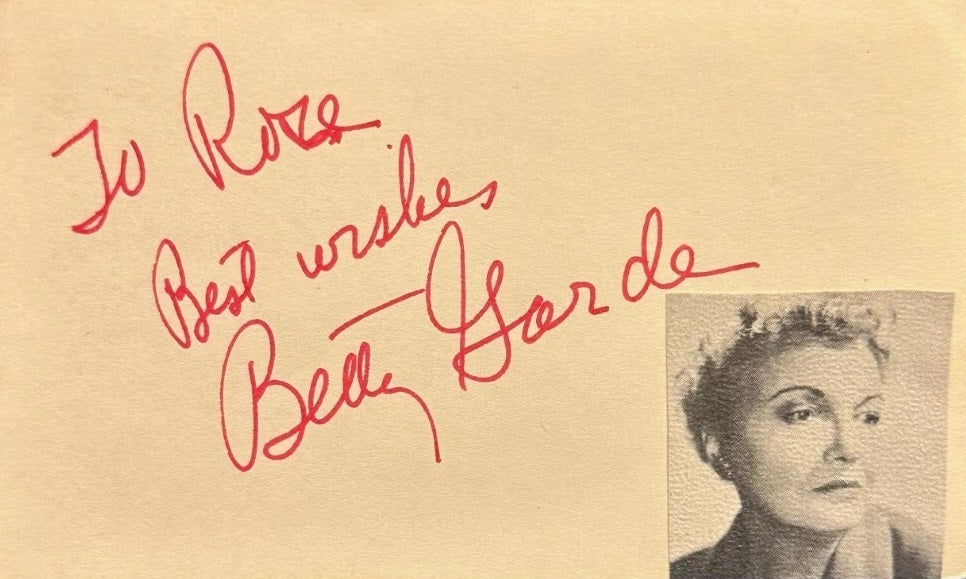 To Rose
Best wishes
Betty Garde